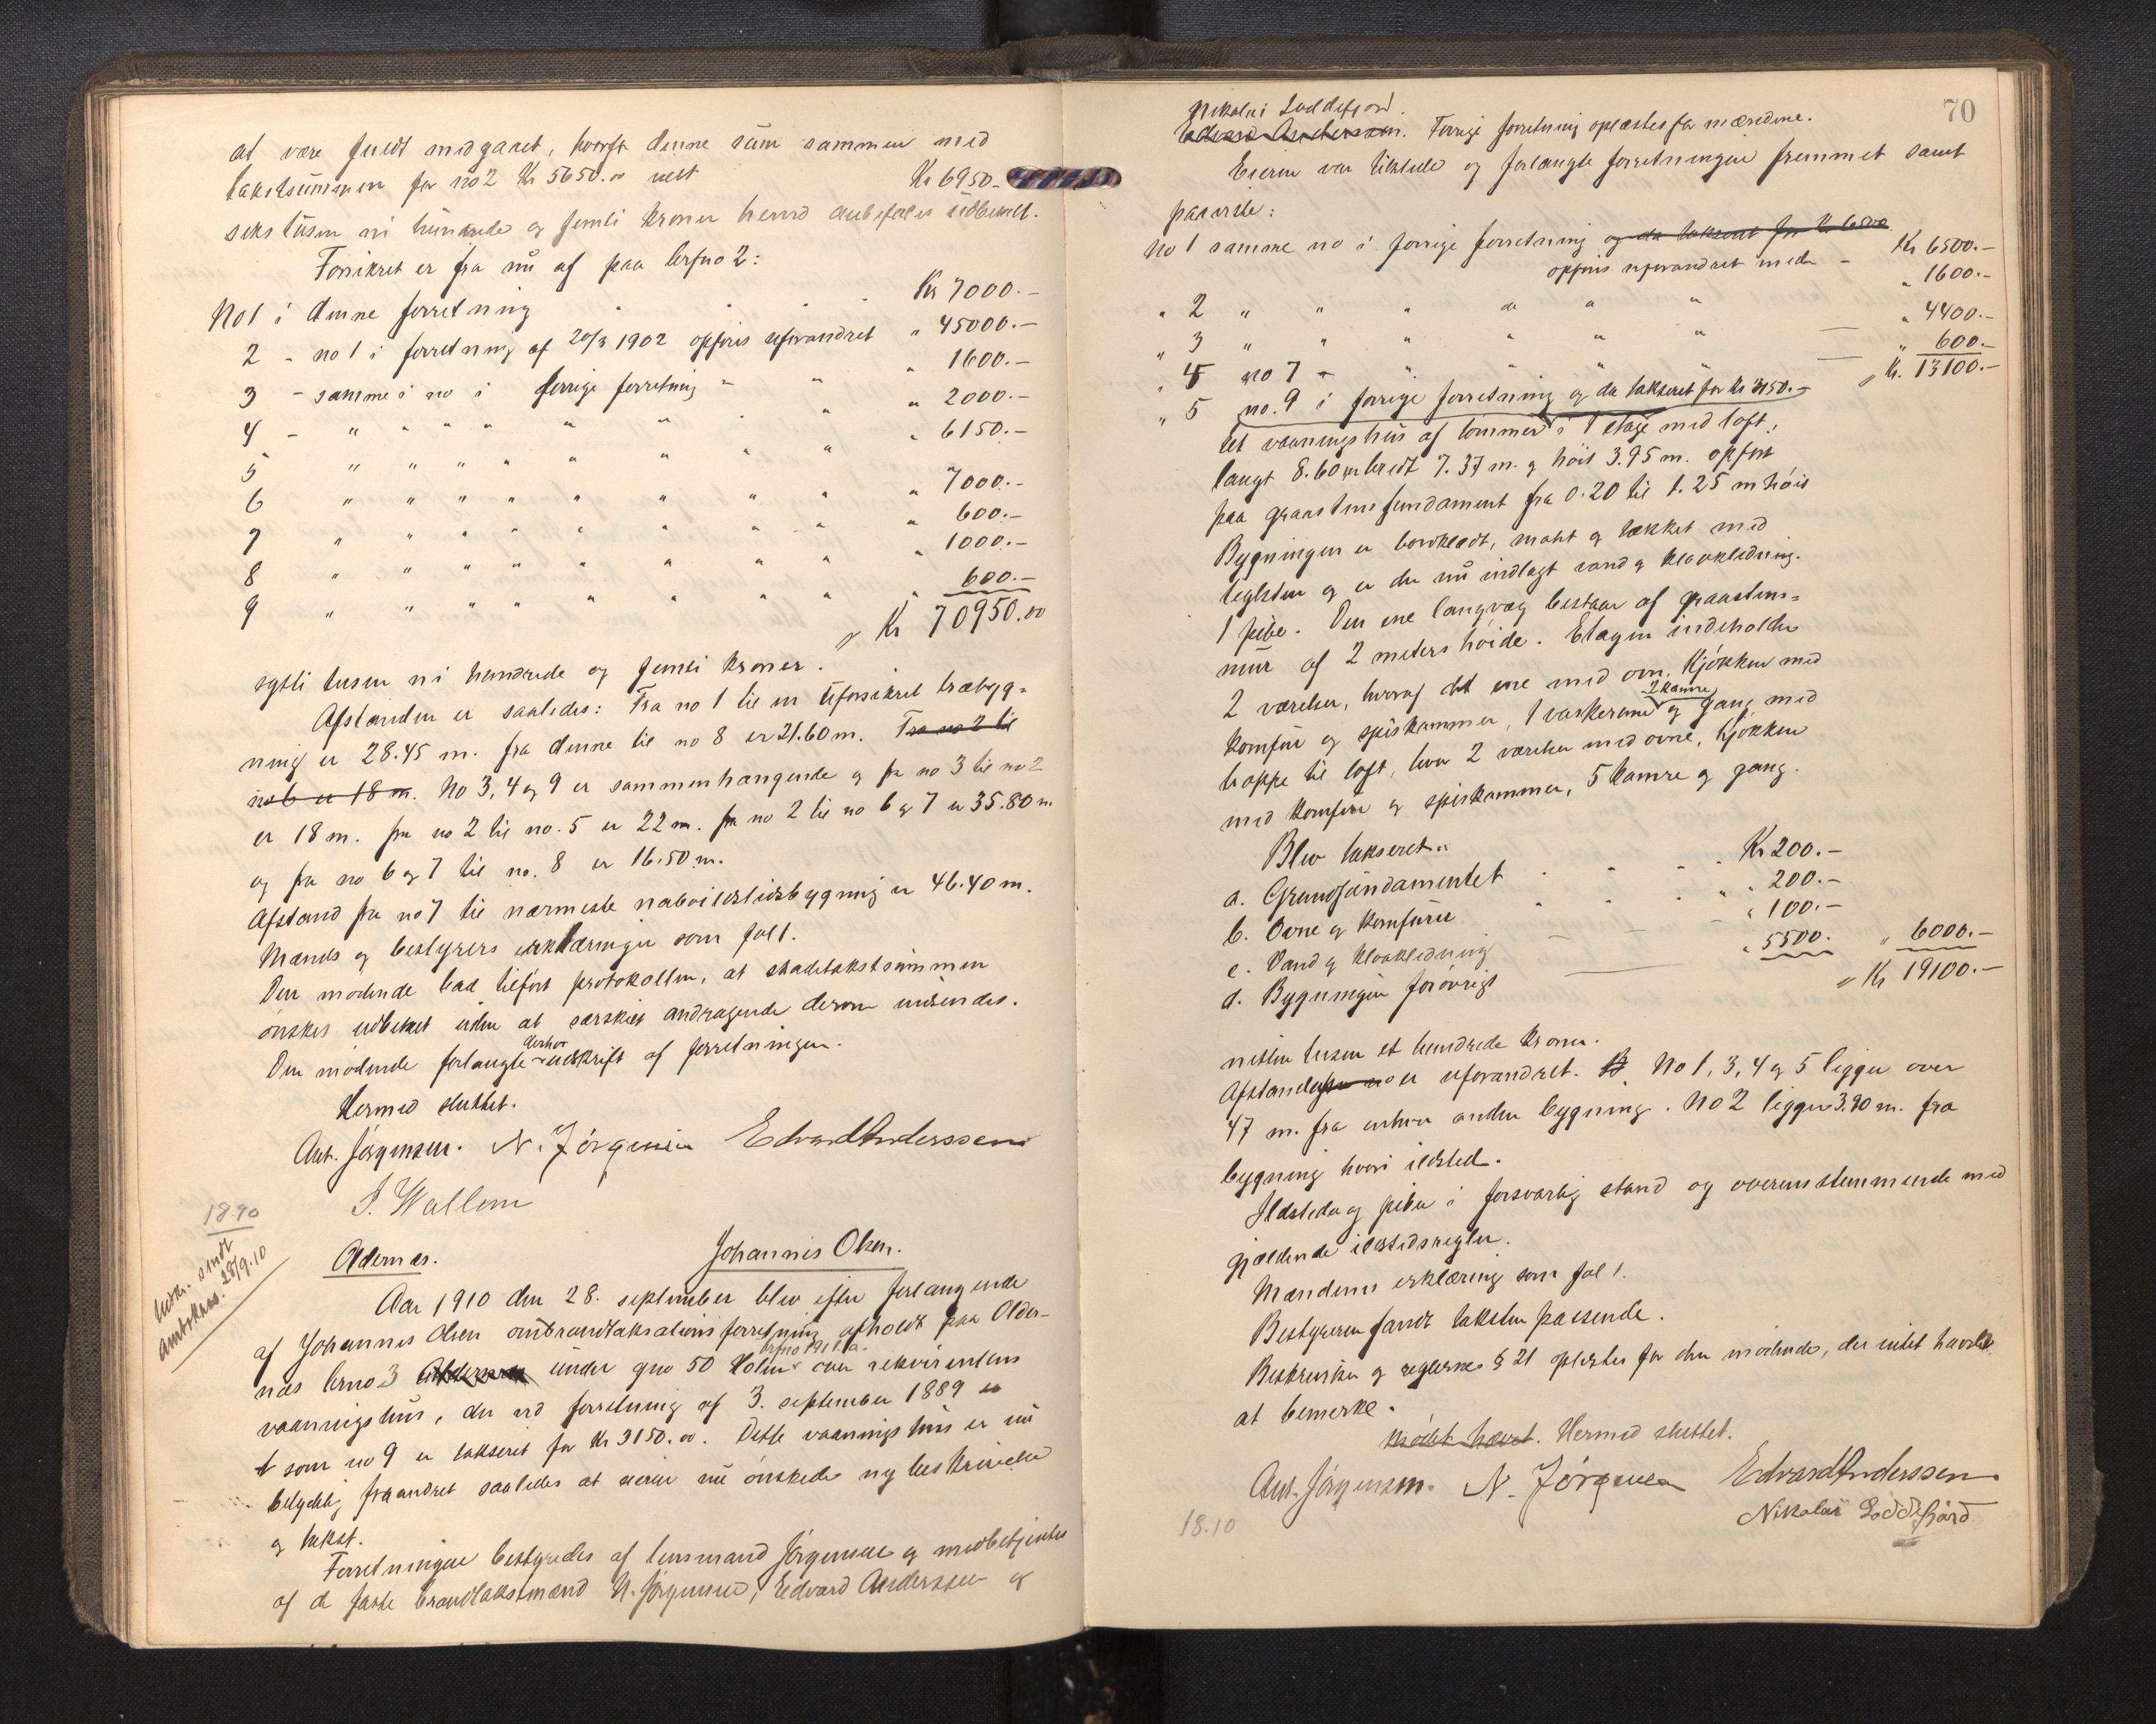 at være fuldt medgaaet, hvorfor denne sum sammen med
takstsummen for no 2 Kr 5650.00 netto Kr 6950.-
seks tusen ni hundrede og femti kroner herved anbefales udbetalt.
Forsikret er fra nu af paa brfno 2:
No 1 i denne forretning Kr 7000.-
2 - no 1 i forretning af 20/3 1902 opføres uforandret " 45000.-
3 - samme i no i forrige forretning " " 1600.-
4 - " " " " " " " " 2000.-
5 " " " " " " " " " 6150.-
6 " " " " " " " " " 7000.-
7 " " " " " " " " " 600.-
8 " " " " " " " " " 1000.-
9 " " " " " " " " " 600.-
Kr 70950.00
sytti tusen ni hundrede og femti kroner.
Afstanden er saaledes: Fra no 1 til en uforsikret træbyg=
ning er 28.45 m. fra denne til no 8 er 21.60 m. Fra no 2 til
no 6 er 18 m. No 3, 4 og 9 er sammenhængende og fra no 3 til no 2
er 18 m. fra no 2 til no. 5 er 22 m. fra no 2 til no 6 og 7 er 35.80 m
og fra no 6 og 7 til no. 8 er 16.50 m.
Afstand fra no 7 til nærmeste naboildstedsbygning er 46.40 m.
Mænds og bestyrers erklæringer som fol 1.
Den mødende bad tilført protokollen, at skadetakstsummen
ønskes udbetalt uden at særskilt andragende derom indsendes.
Den mødende forlangte derhos udskrift af forretningen.
Hermed sluttet.
Ant. Jørgensen. N. Jørgensen Edvard Anderssen
J. Wallem
18.90
Udskr. sendt
Amtskass. 28/9.10
Oldernæs. Johannes Olsen.
Aar 1910 den 28. september blev efter forlangende
af Johannes Olsen ombrandtaksationsforretning afholdt paa Older-
næs brno 3 under gno 50 Holme over rekvirentens
vaaningshus, der ved forretning af 3. september 1889
som no 9 er takseret for Kr 3150.00. Dette vaaningshus er nu
betydelig forandret saaledes at eieren nu ønskede ny beskrivelse
og takst.
Forretningen bestyredes af lensmand Jørgensen og medbetjentes
af de faste brandtakstmænd N. Jørgensen, Edvard Anderssen og
70
Nikolai Loddefjord.
Edvard Anderssen. Forrige forretning oplæstes for mændene.
Eieren var tilstede og forlangte forretningen fremmet samt
paaviste:
No 1 samme no i forrige forretning og da takseret for Kr 6500
opføres uforandret med - Kr 6500.-
" 2 " " " " " " 1600.-
" 3 " " " " " " — " 4400.-
" 4 no 7 - " " " " — " 600.-
Kr. 13100.-
" 5 no. 9 i forrige forretning og da takseret for Kr 3150.-
et vaaningshus af tømmer i 1 etage med loft,
langt 8.60 m bredt 7.37 m. og høit 3.95 m. opført
paa graastensfundament fra 0.20 til 1.25 m høit
Bygningen er bordklædt, malt og tækket med
teglsten og er der nu indlagt vand og kloakledning.
1 pibe. Den ene langvæg bestaar af graastens=
mur af 2 meters høide. Etagen indeholder
2 værelser, hvoraf det ene med ovn, kjøkken med
komfur og spiskammer, 1 vaskerum 2 kamre og gang med
trappe til loft, hvor 2 værelser med ovne, kjøkken
med komfur og spiskammer, 5 kamre og gang.
Blev takseret:
a. Grundfundamentet Kr 200.-
b. Ovne og komfurer " 200.-
c. Vand og kloakledning " 100.-
d. Bygningen forøvrigt " 5500. " 6000.-
Kr 19100.-
nitten tusen et hundrede kroner.
Afstanden er uforandret. No 1, 3, 4 og 5 ligger over
47 m. fra enhver anden bygning. No 2 ligger 3.90 m. fra
bygning hvori ildsted.
Ildsteder og piber i forsvarlig stand og overensstemmende med
gjældende ildstedsregler.
Mændenes erklæring som fol 1.
Bestyreren fandt taksten passende.
Beskrivelsen og reglernes § 21 oplæstes for den mødende, der intet havde
at bemerke.
Mødet hævet. Hermed sluttet.
Ant. Jørgensen. N. Jørgensen Edvard Anderssen
Nikolai Loddefjord
18.10